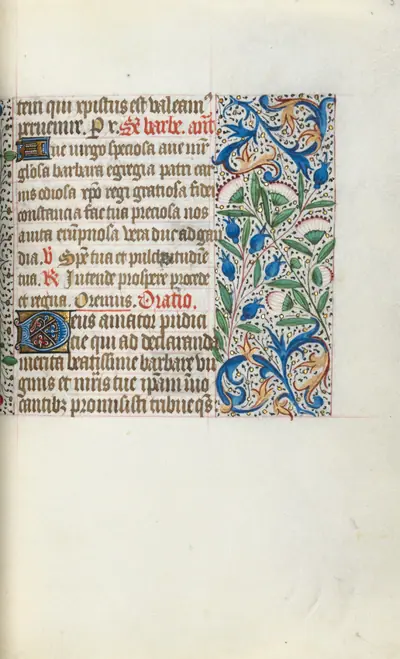 tem qui xpistus est valeam
peruenire. P r. Sē barbe. añt
Aue uirgo speciosa aue mir
glosa barbara egregia patri car
nis ediosa xpō regi gratiosa fidei
constancia fac tua preciosa nos
a uita
vera duc ad gau
dia. V Spē tua et pulchritudine
tua. R Intende prospere procede
et regna. Oremus. Oratio.
Deus amator pudici
cie qui ad declaranda
merita beatissime barbare vir
ginis et m̄ris tue ip̄am inuo
cantibȝ promisisti tribue q̄s